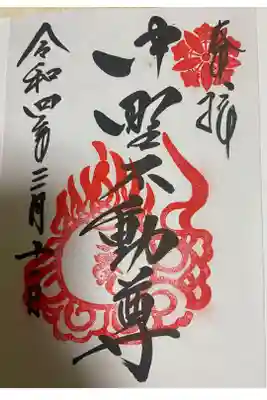 奉拝
中野不動尊
令和四年三月十日